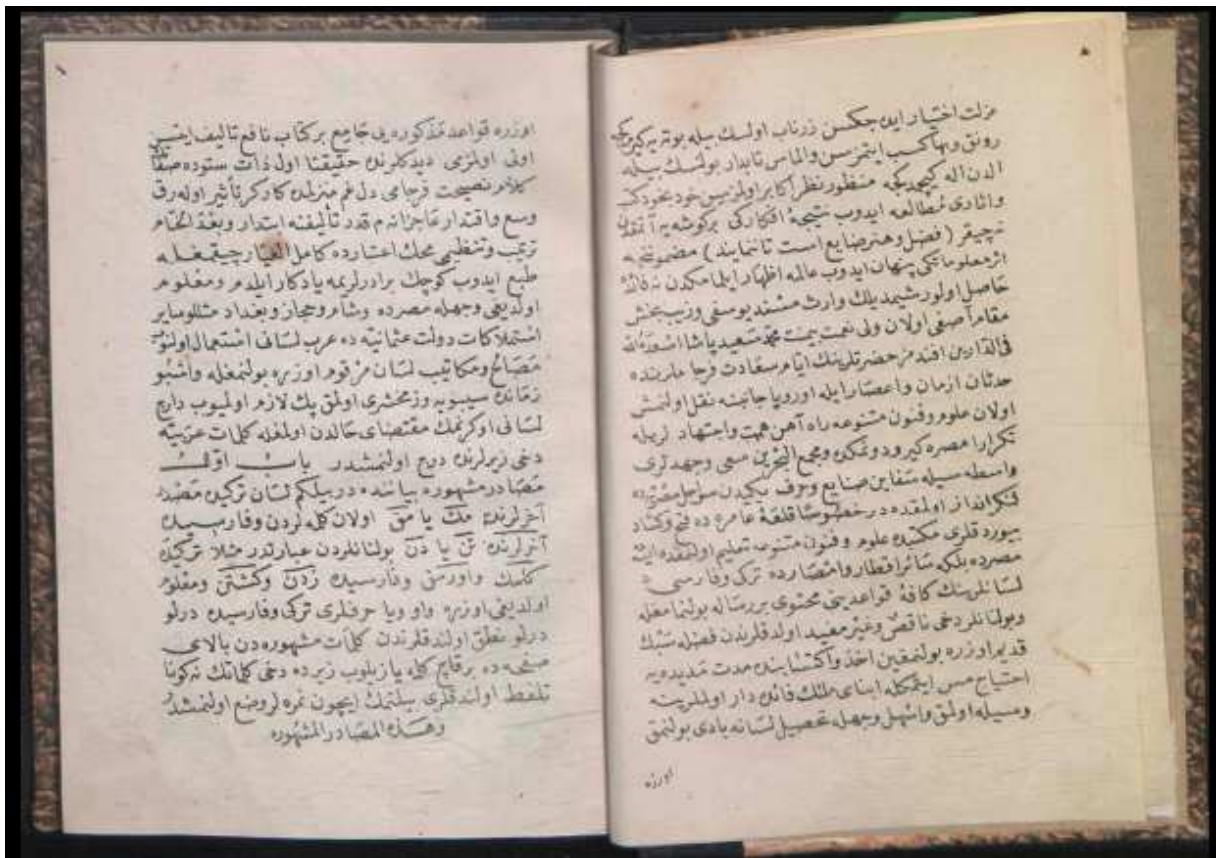 عزلت اختيار ايده جكسن زرناب اولسك بيله بوته يه كيرمدكجه
رونق وبها كسب ايتمزسن والماس تابدار بولنسك بيله
الدن اله كچمدكجه منظور نظر اكابر اولمزسن خود بخودك
واثارى مطالعه ايدوب نتيجۀ افكاركى بر كوشه يه آتمقدن
نه چيقر (فضل وهنر ضايع است تا ننمايند) مضموننجه
اثر معلوماتكى پنهان ايدوب عالمه اظهار ايلمامكدن نه فائده
حاصل اولور شيمديلك وارث مسند يوسفى وزيب بخش
مقام آصفى اولان ولى نعمت بيمنت محمد سعيد پاشا اسعده الله
فى الدارين افندمز حضرتلرينك ايام سعادت فرجاملرنده
حدثان ازمان واعصار ايله اوروپا جانبنه نقل اولنمش
اولان علوم وفنون متنوعه راه آهن همت واجتهاد لريله
تكرارا مصره كيرودونمكده ومجمع البحرين سعى وجهدلرى
واسطه سيله سفاين صنايع وحرف يكيدن سواحل مصريه ده
لنكر انداز اولمقده در خصوصا قلعۀ عامره ده فتح وكشاد
بيوردقلرى مكتبده علوم وفنون متنوعه تعليم اولنمقده ايسه
مصرده بلكه سائر اقطار وامصارده تركى وفارسى
لسانلرينك كافۀ قواعدينى محتوى بر رساله بولنمامغله
وبولنانلر دخى ناقص وغير مفيد اولدقلرندن فضله سبك
قديم اوزره بولنمغين اخذ واكتسابنده مدت مديده يه
احتياج مس ايتمكله ابناى ملتك فائده دار اولملرينه
وسيله اولمق واسهل وجهله تحصيل لسانه بادى بولنمق
اوزره
اوزره قواعد مذكوره يى جامع بر كتاب نافع تأليف ايتسه ك
اولى اولمزمى ديدكلرنده حقيقتا اول ذات ستوده صفاتك
كلام نصيحت فرجامى دل غم منزلمده كاركر تأثير اوله رق
وسع واقتدار عاجزانه م قدر تأليفنه ابتدار وبعد الختام
ترتيب وتنظيمى محك اعتبارده كامل العيار چيقمغله
طبع ايدوب كوچك برادرلريمه يادكار ايلدم ومعلوم
اولديغى وجهله مصرده وشام وحجاز وبغداد مثللو ساير
استملاكات دولت عثمانيه ده عرب لسانى استعمال اولنوب
مصالح ومكاتيب لسان مرقوم اوزره بولنمغله واشبو
زمانده سيبويه وزمخشرى اولمق پك لازم اولميوب دارج
لسانى اوكرنمك مقتضاى حالدن اولمغله كلمات عربيه
دخى زيرلرنده درج اولنمشدر باب اول
مصادر مشهوره بياننده در بيلكم لسان تركيده مصدر
آخرلرنده مك يا مق اولان كلمه لردن وفارسيده
آخرلرنده تن يا دن بولنانلردن عبارتدر مثلا تركيده
كلمك واورمق وفارسيده زدن وكشتن ومعلوم
اولديغى اوزره واو ويا حرفلرى تركى وفارسيده درلو
درلو نطق اولندقلرندن كلمات مشهوره دن بالاى
صفحه ده بر قاچ كلمه يازيلوب زيرده دخى كلماتك نه كونا
تلفظ اولندقلرى بيلنمك ايچون نمره لر وضع اولنمشدر
وهذه المصادر المشهوره